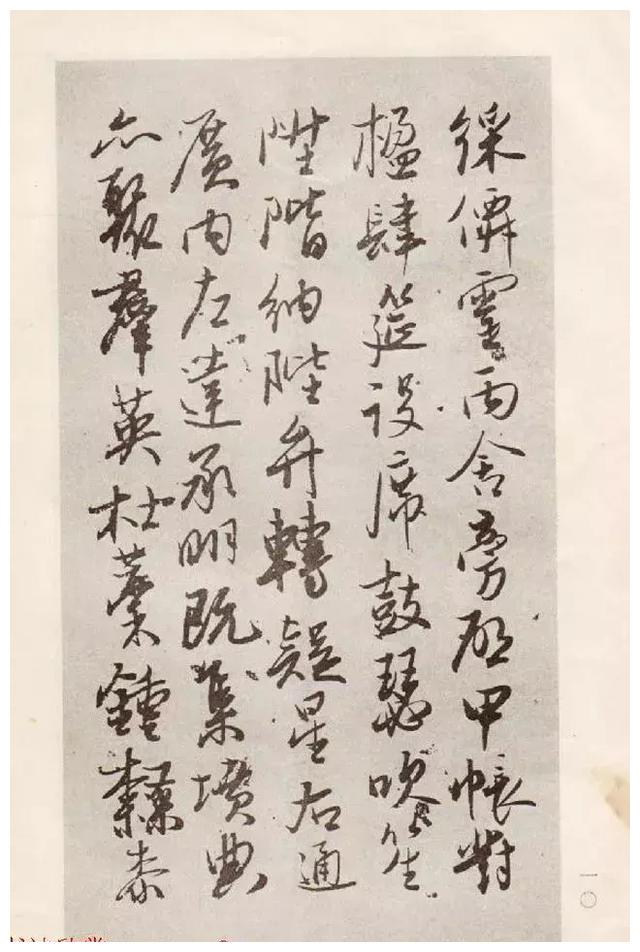 綵僊靈丙舍旁啓甲帳對
楹肆筵設席鼓瑟吹笙
陞階納陛弁轉疑星右通
廣內左達承明既集墳典
亦聚羣英杜稾鍾隸桼
一〇